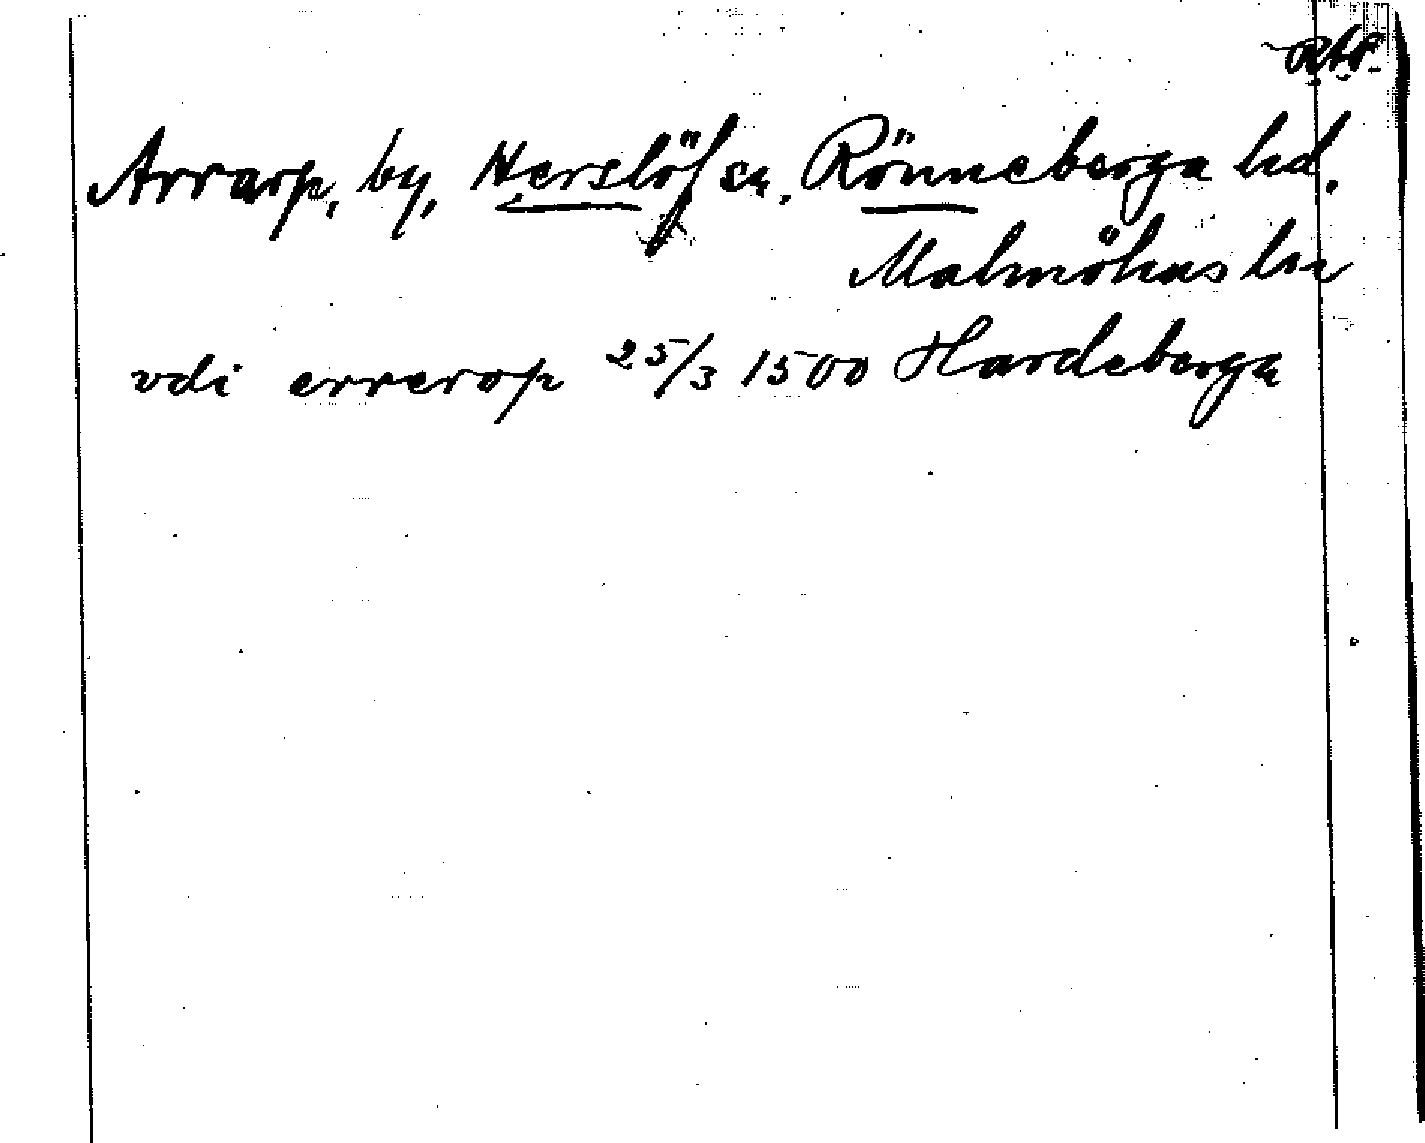 Arrarp, by, Herslöf sn, Rönneberga hd.
Malmöhus län
vdi errerop 25/3 1500 Hardeberga